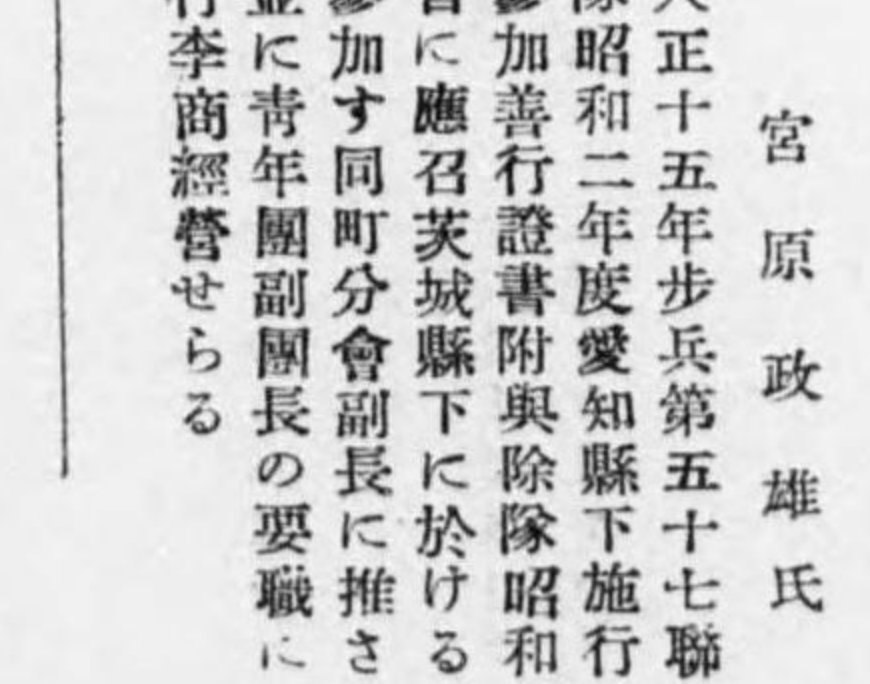 宮原政雄氏
正十五年步兵第五十七聯
昭和二年度愛知縣下施行
加善行證書附與除隊昭和
に應召茨城縣下に於ける
加す同町分會副長に推さ
に靑年團副團長の要職に
李商經營せらる